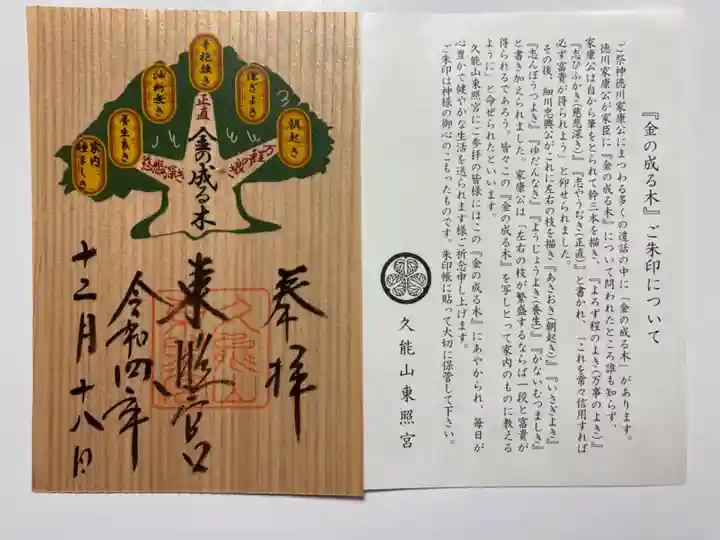 『金の成る木』ご朱印について
ご祭神徳川家康公にまつわる多くの遺話の中に「金の成る木」があります。
徳川家康公が家臣に『金の成る木』について問われたところ誰も知らず、
家康公は自から筆をとられて幹三本を描き、『よろず程のよき(万事のよき)』
『志ひふかき(慈悲深き)』『志やうぢき(正直)』と書かれ、「これを常々信用すれば
必ず富貴が得られよう」と仰せられました。
その後、細川忠興公がこれに左右の枝を描き『あさおき(朝起き)』『いさぎよき』
『志んぼうつよき』『ゆだんなき』『ようじょうよき(養生)』『がないむつましき』
と書き加えられました。家康公は「左右の枝が繁盛するならば一段と富貴が
得られるであろう。皆々この『金の成る木』を写しとって家内のものに教える
ように」と命ぜられたといいます。
久能山東照宮にご参拝の皆様にはこの『金の成る木』にあやかられ、毎日が
心豊かで健やかな生活を送られます様ご祈念申し上げます。
ご朱印は神様の御心のこもったものです。朱印帳に貼って大切に保管して下さい。
久能山東照宮
朝起き
潔ぎよき
辛抱強き
油断無き
養生良き
家内睦ましき
万程の能
正直
慈悲深き
金の成る木
奉拝
東照宮
令和四年
十二月十八日